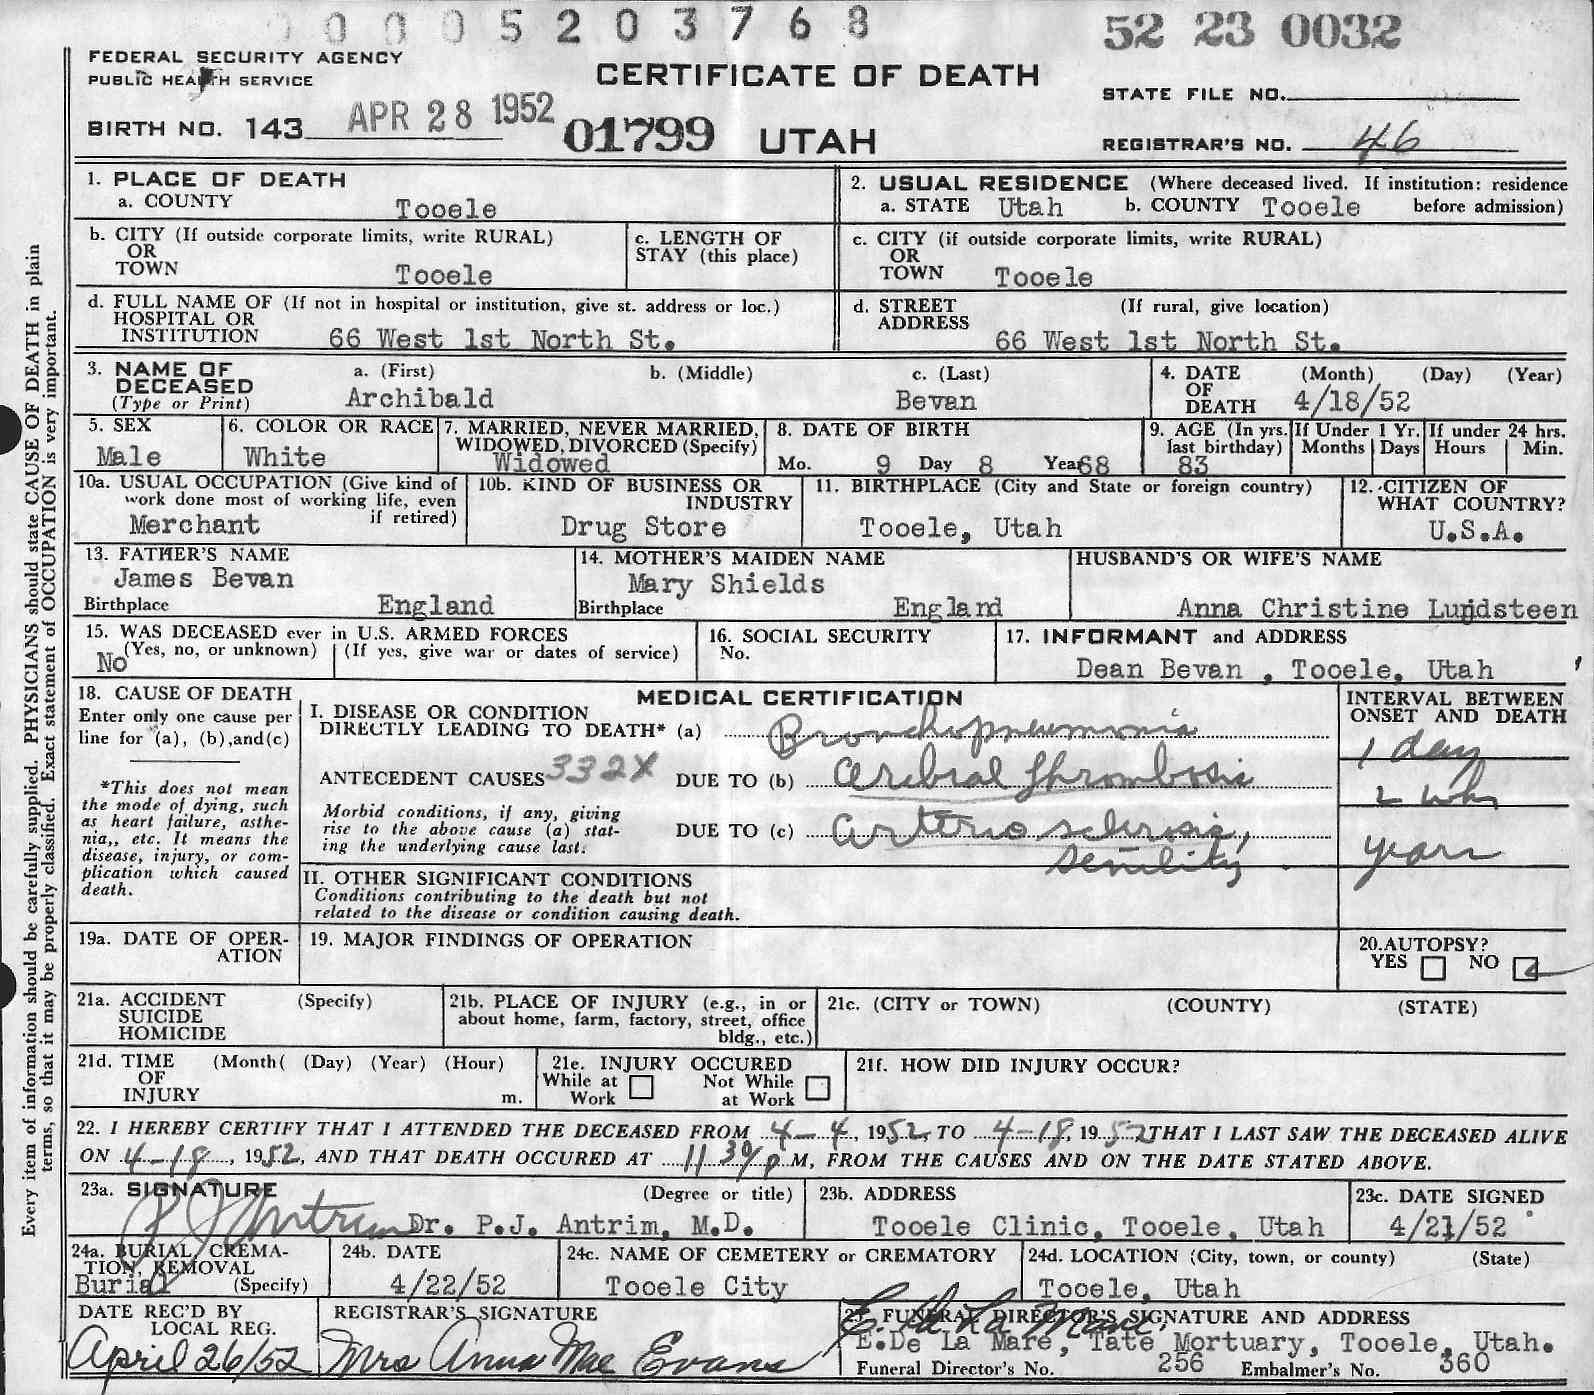 0 0 0 5 2 0 3 7 6 8
52 23 0032
FEDERAL SECURITY AGENCY
PUBLIC HEALTH SERVICE
CERTIFICATE OF DEATH
STATE FILE NO.
BIRTH NO. 143 APR 28 1952
01799 UTAH
REGISTRAR'S NO. 46
Every item of information should be carefully supplied. PHYSICIANS should state CAUSE OF DEATH in plain
terms, so that it may be properly classified. Exact statement of OCCUPATION is very important.
1. PLACE OF DEATH
a. COUNTY Tooele
2. USUAL RESIDENCE (Where deceased lived. If institution: residence
a. STATE Utah b. COUNTY Tooele before admission)
b. CITY (If outside corporate limits, write RURAL)
OR
TOWN Tooele
c. LENGTH OF
STAY (this place)
c. CITY (if outside corporate limits, write RURAL)
OR
TOWN Tooele
d. FULL NAME OF (If not in hospital or institution, give st. address or loc.)
HOSPITAL OR
INSTITUTION 66 West 1st North St.
d. STREET (If rural, give location)
ADDRESS
66 West 1st North St.
3. NAME OF a. (First) b. (Middle) c. (Last)
DECEASED
(Type or Print) Archibald Bevan
4. DATE (Month) (Day) (Year)
OF
DEATH 4/18/52
5. SEX
Male
6. COLOR OR RACE
White
7. MARRIED, NEVER MARRIED,
WIDOWED, DIVORCED (Specify)
Widowed
8. DATE OF BIRTH
Mo. 9 Day 8 Year 68
9. AGE (In yrs.
last birthday)
83
If Under 1 Yr.
Months Days
If under 24 hrs.
Hours Min.
10a. USUAL OCCUPATION (Give kind of
work done most of working life, even
if retired)
Merchant
10b. KIND OF BUSINESS OR
INDUSTRY
Drug Store
11. BIRTHPLACE (City and State or foreign country)
Tooele, Utah
12. CITIZEN OF
WHAT COUNTRY?
U.S.A.
13. FATHER'S NAME
James Bevan
Birthplace England
14. MOTHER'S MAIDEN NAME
Mary Shields
Birthplace England
HUSBAND'S OR WIFE'S NAME
Anna Christine Lundsteen
15. WAS DECEASED ever in U.S. ARMED FORCES
(Yes, no, or unknown) (If yes, give war or dates of service)
No
16. SOCIAL SECURITY
No.
17. INFORMANT and ADDRESS
Dean Bevan , Tooele, Utah
18. CAUSE OF DEATH
Enter only one cause per
line for (a), (b), and (c)
*This does not mean
the mode of dying, such
as heart failure, asthe-
nia,, etc. It means the
disease, injury, or com-
plication which caused
death.
MEDICAL CERTIFICATION
I. DISEASE OR CONDITION
DIRECTLY LEADING TO DEATH* (a) Bronchopneumonia
ANTECEDENT CAUSES 332X DUE TO (b) Cerebral thrombosis
Morbid conditions, if any, giving
rise to the above cause (a) stat-
ing the underlying cause last.
DUE TO (c) Arterio sclerosis,
senility
INTERVAL BETWEEN
ONSET AND DEATH
1 day
2 wks
years
II. OTHER SIGNIFICANT CONDITIONS
Conditions contributing to the death but not
related to the disease or condition causing death.
19a. DATE OF OPER-
ATION
19. MAJOR FINDINGS OF OPERATION
20. AUTOPSY?
YES NO
21a. ACCIDENT (Specify)
SUICIDE
HOMICIDE
21b. PLACE OF INJURY (e.g., in or
about home, farm, factory, street, office
bldg., etc.)
21c. (CITY or TOWN) (COUNTY) (STATE)
21d. TIME (Month( (Day) (Year) (Hour)
OF
INJURY m.
21e. INJURY OCCURED
While at Not While
Work at Work
21f. HOW DID INJURY OCCUR?
22. I HEREBY CERTIFY THAT I ATTENDED THE DECEASED FROM 4-4, 1952, TO 4-18, 1952 THAT I LAST SAW THE DECEASED ALIVE
ON 4-18, 1952, AND THAT DEATH OCCURED AT 11 30 p M, FROM THE CAUSES AND ON THE DATE STATED ABOVE.
23a. SIGNATURE (Degree or title)
P J Antrim Dr. P.J. Antrim, M.D.
23b. ADDRESS
Tooele Clinic, Tooele, Utah
23c. DATE SIGNED
4/21/52
24a. BURIAL, CREMA-
TION, REMOVAL
Burial (Specify)
24b. DATE
4/22/52
24c. NAME OF CEMETERY or CREMATORY
Tooele City
24d. LOCATION (City, town, or county) (State)
Tooele, Utah
DATE REC'D BY
LOCAL REG.
April 26/52
REGISTRAR'S SIGNATURE
Mrs Anna Mae Evans
25. FUNERAL DIRECTOR'S SIGNATURE AND ADDRESS
E. De La Mare
E.De La Mare, Tate Mortuary, Tooele, Utah.
Funeral Director's No. 256 Embalmer's No. 360